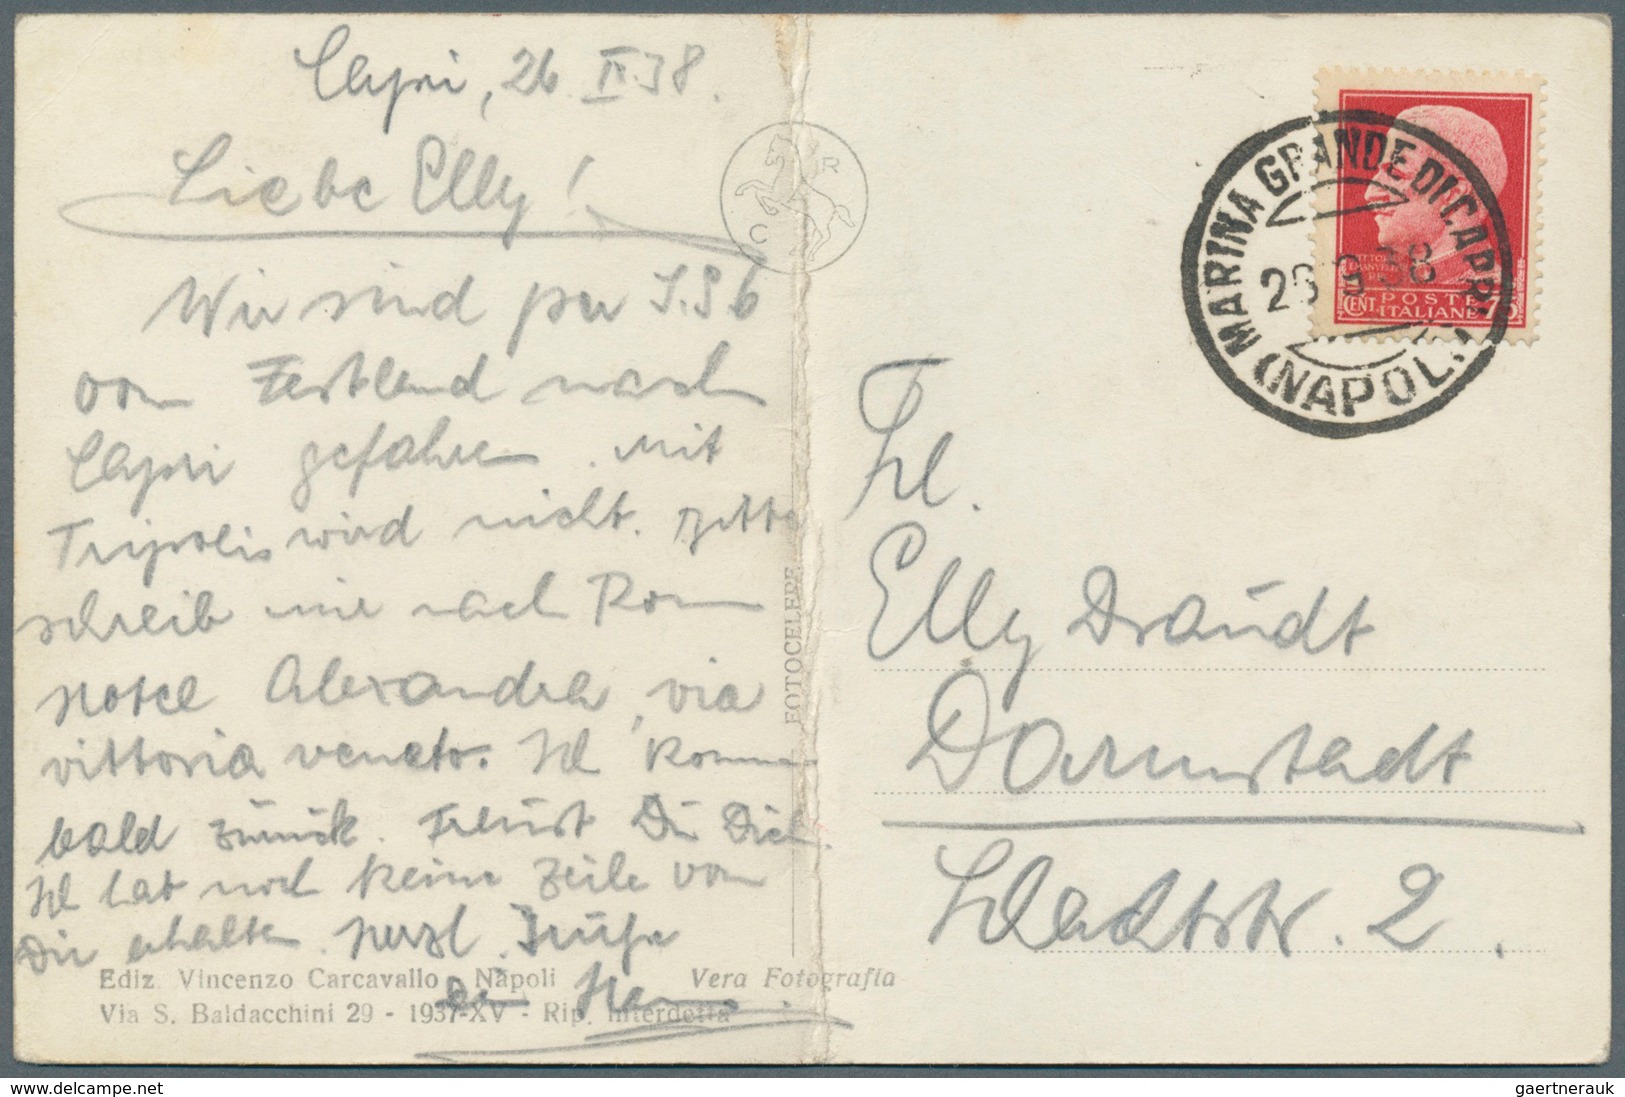 Capri, 26 IX 38.
Liebe Elly!
Wir sind per
vom Festland nach
Capri gefahren. Mit
Tripolis wird nicht. Bitte
schreib mir nach Rom
Hotel Alexandra, via
vittoria veneto. Ich komme
bald zurück. Freust Du Dich.
Ich hab noch keine Zeile von
Dir erhalten. Herzl. Grüße
Ediz. Vincenzo Carcavallo - Napoli Vera Fotografia
Via S. Baldacchini 29 - 1937-XV - Rip. Interdetta
C R
FOTOCELERE
MARINA GRANDE DI CAPRI
(NAPOLI)
POSTE
ITALIANE
CENT 75
Frl.
Elly Draudt
Darmstadt
2.
delcampe.net
gaertnerauk